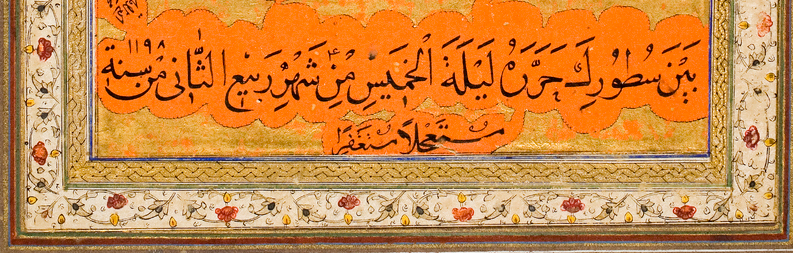 بَيْنَ سُطُورِكَ حَرَّرَهُ لَيْلَةَ الْخَمِيسِ مِنْ شَهْرِ رَبِيعِ الثَّانِي مِنْ سنة ١١٩٨
مستعجلًا مستغفرًا